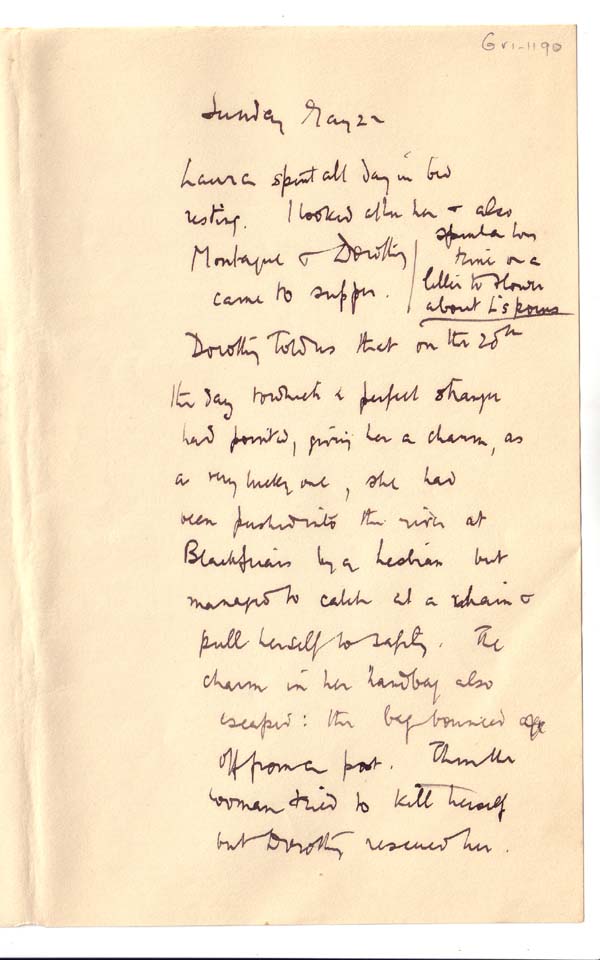 Gv1-1190
Sunday May 22
Laura spent all day in bed
resting. I looked after her & also
spent a long
time on a
letter to
about L's poems
Montague & Dorothy
came to supper.
Dorothy told us that on the 20th
the day to which a perfect stranger
had pointed, giving her a charm, as
a very lucky one, she had
been pushed into the river at
Blackfriars by a Lesbian but
managed to catch at a chain &
pull herself to safety. The
charm in her handbag also
escaped: the bag bounced
off from a post. Then the
woman tried to kill herself
but Dorothy rescued her.